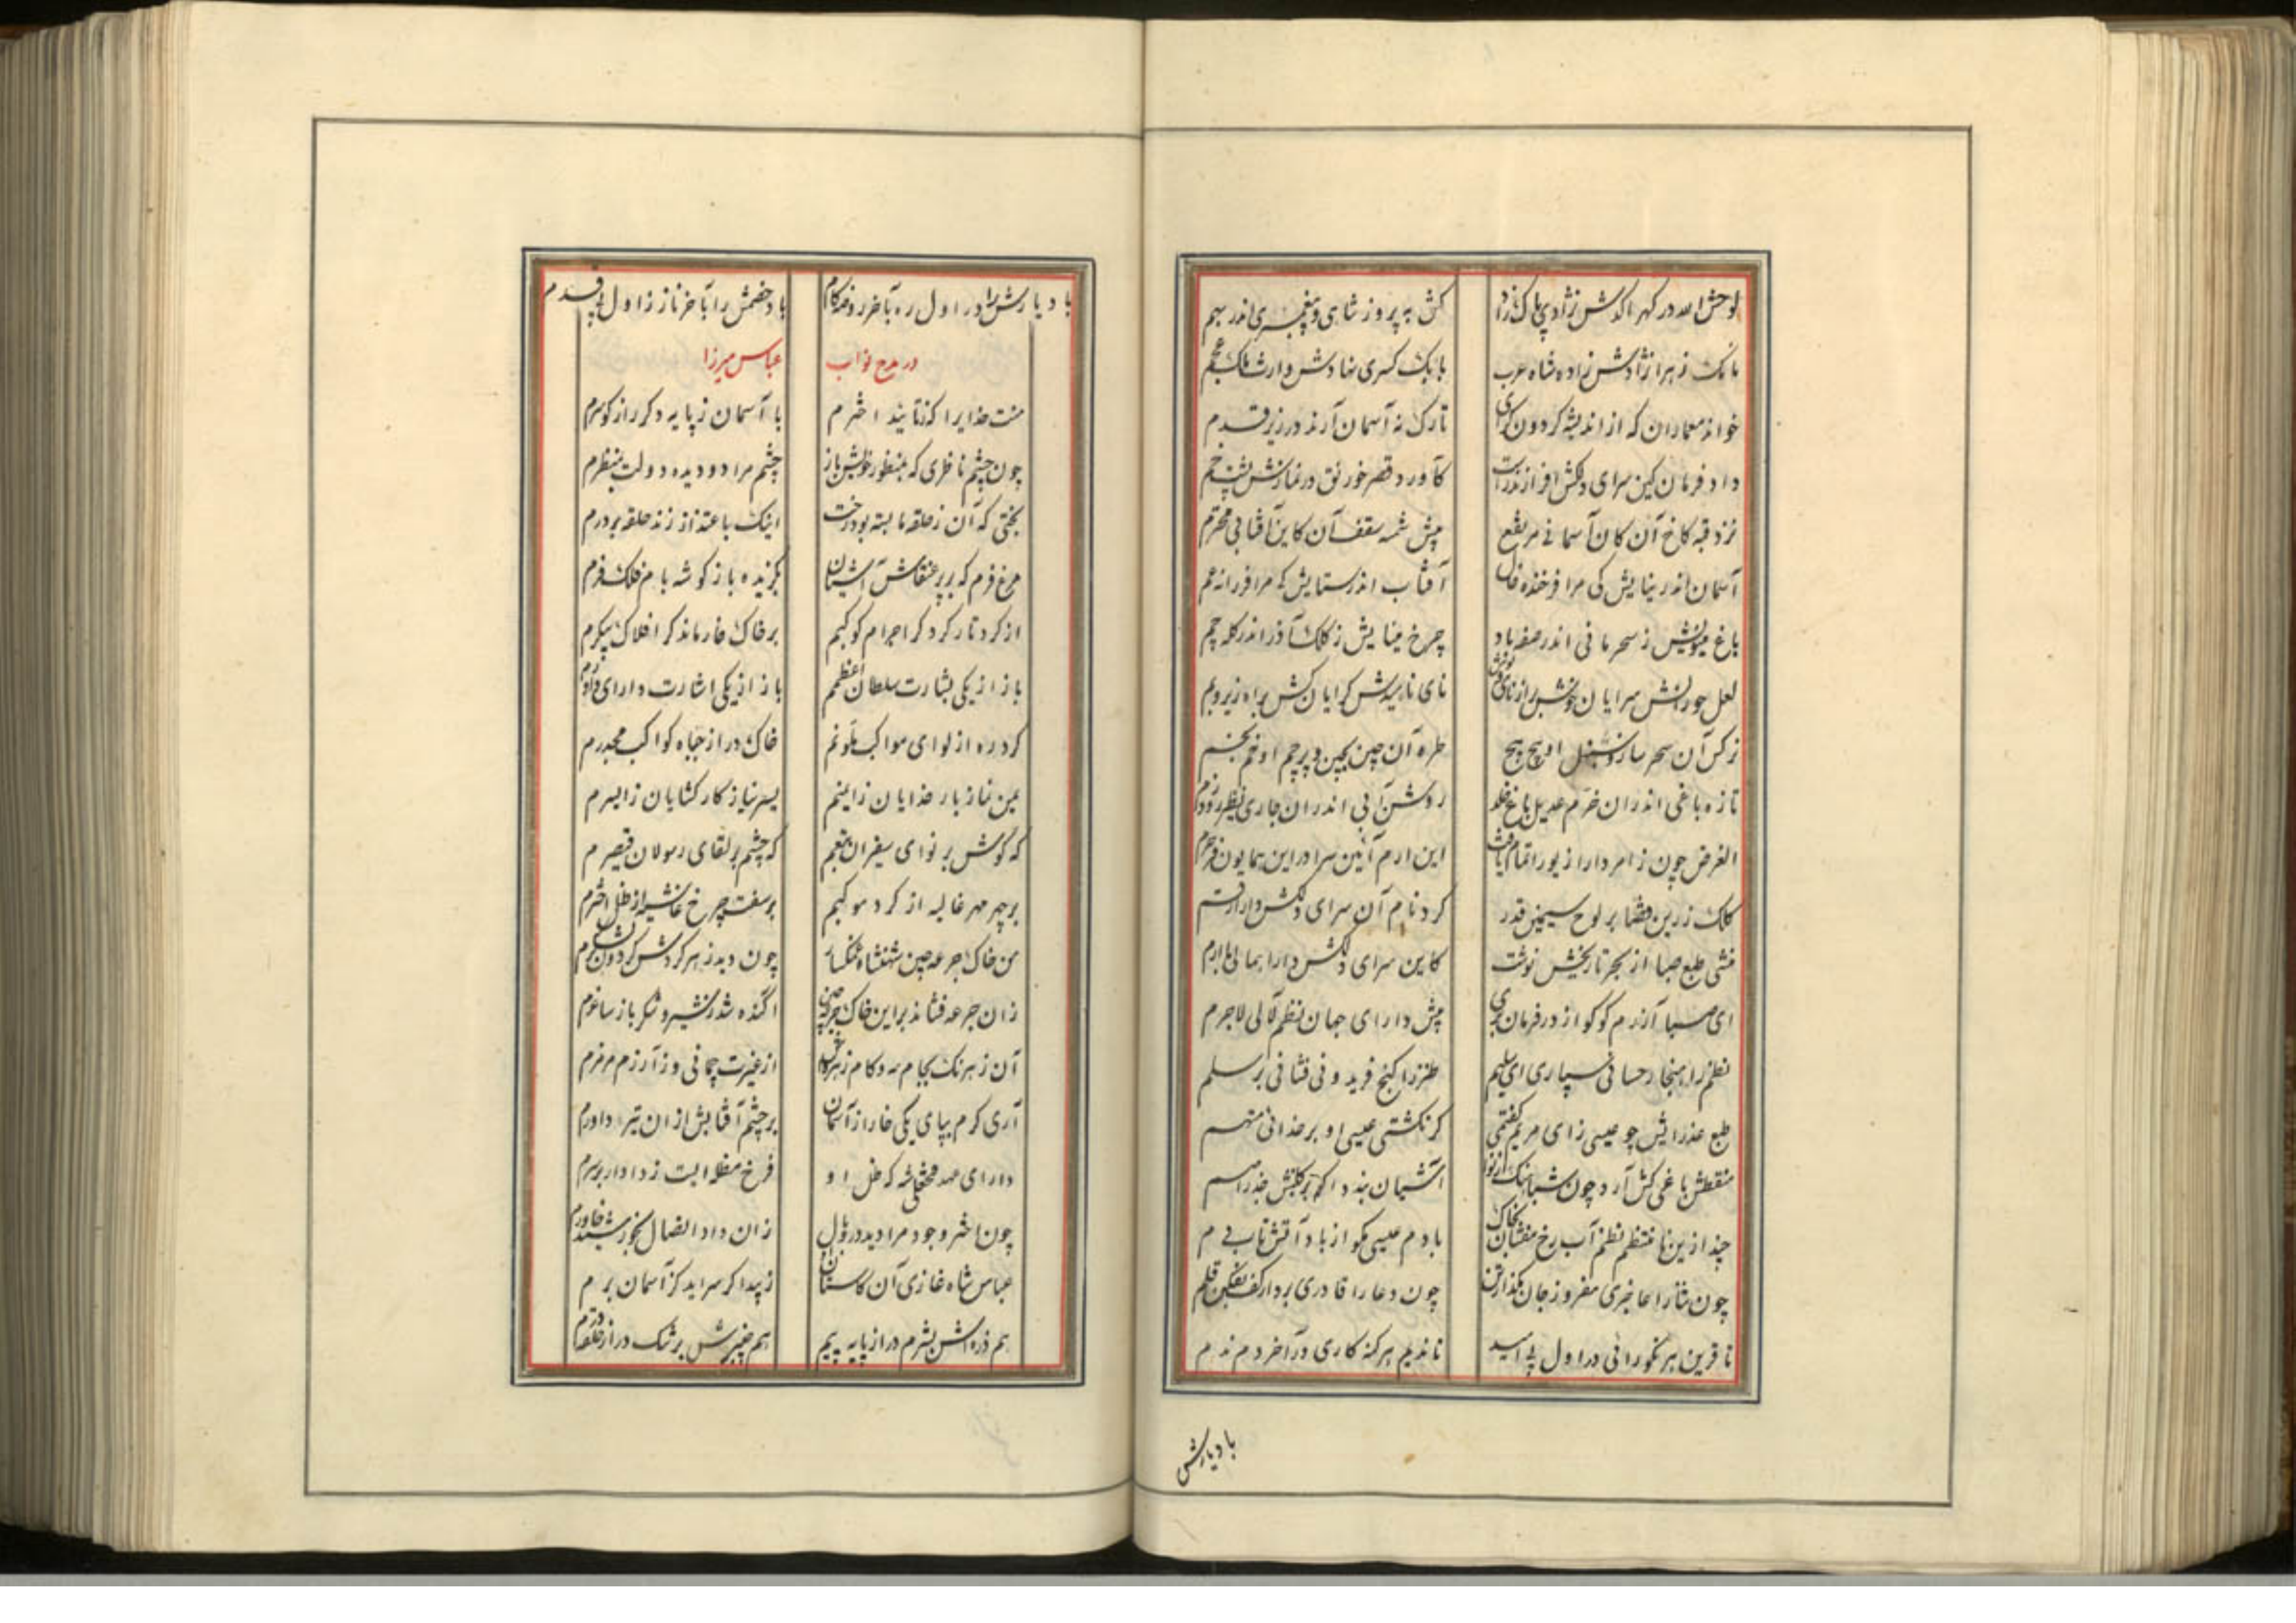 لوحش الله در گهر پاکش نژاد پاک زاد
کش به پرویز شاهی و پیغمبری اندر بهم
بانک زهرا نژادش زاده شاه عرب
بابک کسری نهادش وارث ملک عجم
خواند معماران که از اندیشه کردون کرای
تارک نه آسمان آرند در زیر قدم
داد فرمان کین سرای دلکش افرازند راست
کآورد قصر خورنق در نمازش پشت خم
نزد قبه کاخ آن کان آسمانی مرتفع
پیش شمسه سقف آن کاین آفتابی محترم
آسمان اندر نیایش کی مرا فرخنده فال
آفتاب اندر ستایش که مرا فرزانه عم
باغ مینویش ز سحر مانی اندر صفر باد
چرخ مینایش ز کلک آذر اندر کله چم
لعل حورانش سرایان خوش بر از نای نوش
نای ناهیدش کرایان کش براه زیر و بم
نرکس آن سحر ساز و سنبل او پیچ پیچ
طره آن چین بچین و پرچم او خم بخم
تازه باغی اندران خرم عدیل باغ خلد
روشن آبی اندران جاری نظیر رود زم
الغرض چون ز امر دارا زیور اتمام یافت
این ارم آئین سرا در این همایون فر حرم
کلک زرین قضا بر لوح سیمین قدر
کرد نام آن سرای دلکش دارا رقم
منشی طبع صبا از بهر تاریخش نوشت
کاین سرای دلکش دارا همال باارم
ای صبا آزرم کو کو از در فرمان بری
پیش دارای جهان نظم لآلی لاجرم
نظم را هنجار حسانی سپاری ای سلیم
طنز را کنج فرید و نی فشانی بر سلم
طبع عذرایش چو عیسی زای مریم گفتمی
کر نکشتی عیسی او بر خدائی متهم
منقطش باغی کش آرد چون شباهنگ از نوا
آشیان بندد اکر بر کلبنش جذر اصم
چند ازین نا منتظم نظم آب رخ مفشان بخاک
با دم عیسی مکو از باد آتش تاب دم
چون ثنا را عاجزی مفروز جان مکداز تن
چون دعا را قادری بردار کف بفکن قلم
تا قرین هر نکورائی در اول با امید
تا ندیم هر کنه کاری در آخر دم ندم
با دیارش
با دیارش را در اول ره بآخر روضه کام
باد خصمش را بآخر ناز ز اول پی قدم
در مدح نواب
عباس میرزا
منت خدایرا که ز تابنده اخترم
با آسمان ز پایه دکر راز کو سرم
چون چشم ناظری که بمنظور خویش باز
چشم مراد و دیده دولت بمنظرم
بختی که آن ز حلقه ما بسته بود رخت
اینک باعتذار زند حلقه بر درم
مرغ فرم که بر پر عنقاش آشیان
بگزیده باز کوشه بام فلک فرم
از کرد تار کرد کر اجرام کوکبم
بر خاک خار ماند کر افلاک پیکرم
باز از یکی بشارت سلطان اعظمم
باز از یکی اشارت دارای داورم
کرد ره از لوای مواکب ملونم
خاک در از جباه کواکب مجدرم
یمین نماز بار خدایان ز ایمنم
یسر نیاز کارکشایان ز ایسرم
که گوش بر نوای سفیران بقعم
که چشم بر لقای رسولان قیصرم
بر چهر مهر غالیه از کرد موکبم
بر سفت چرخ غاشیه از ظل اخترم
من خاک جرعه چین شهنشاه خاکسار
چون دید زهر کردش کردون بشکرم
زان جرعه فشاند بر این خاک جرعه چین
آکنده شد ز شیر و شکر باز ساغرم
آن زهر نک بجام مه و کام زهره کن
از غیرت چمانی و ز آزرم مزمرم
آری کرم بپای یکی خار از آسمان
بر چشم آفتابش ازان تیر داورم
دارای عهد فتحعلی شه که ظل او
فرخ مظله ایست ز دادار بر سرم
چون اختر وجود مرا دید در وبال
زان داد اتصال بخورشید خاورم
عباس شاه غازی آن کاستان
ز پیدا کر سراید کز آسمان برم
هم ذره اش بشرم در از پایه پیم
هم چنبرش برشک در از حلقه درم